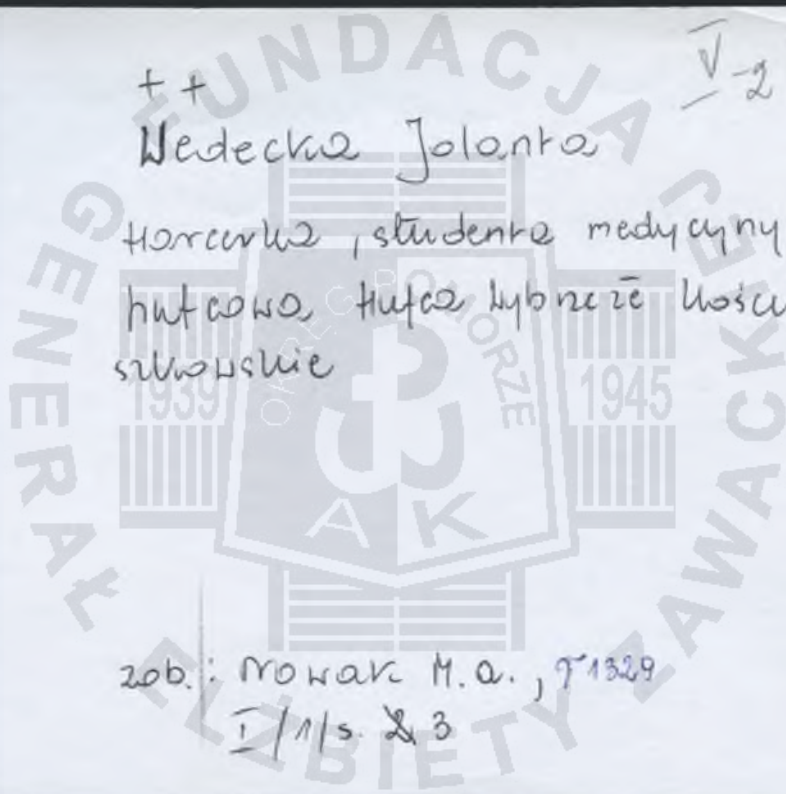 V-2
++
Wedecka Jolanta
Harcerka, studentka medycyny
hufcowa Hufca Wybrzeże Kościu
szkowskie
zob.: Nowak M.A., T1329
I/1/s. 3
FUNDACJA
GENERAŁ ELŻBIETY ZAWACKIEJ
OKRĘG POMORZE
1939
1945
AK